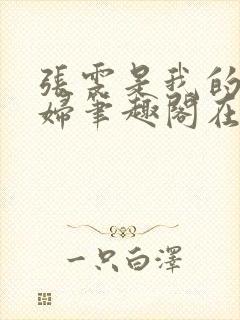 張雲是我的
婦筆趣閣在
一只白澤